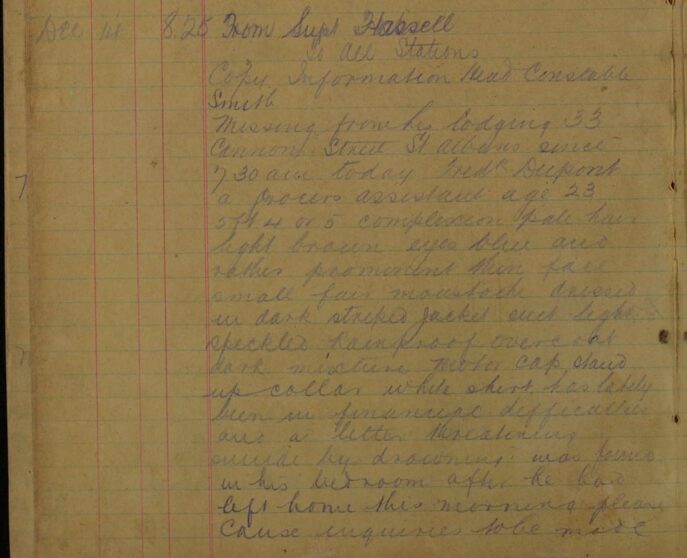 Dec 14 8.25 From Supt Hassell
To All Stations
Copy Information Head Constable
Smith
Missing from his lodging 33
Cannon Street St Albans since
7 30 am today Fredk Dupont
a Grocers assistant age 23
5 ft 4 or 5 complexion pale hair
light brown eyes blue and
rather prominent thin face
small fair moustache dressed
in dark striped Jacket suit light
speckled Rainproof overcoat
dark mixture Motor cap stand
up collar white shirt, has lately
been in financial difficulties
and a letter threatening
suicide by drowning was found
in his bedroom after he had
left home this morning please
Cause inquiries to be made